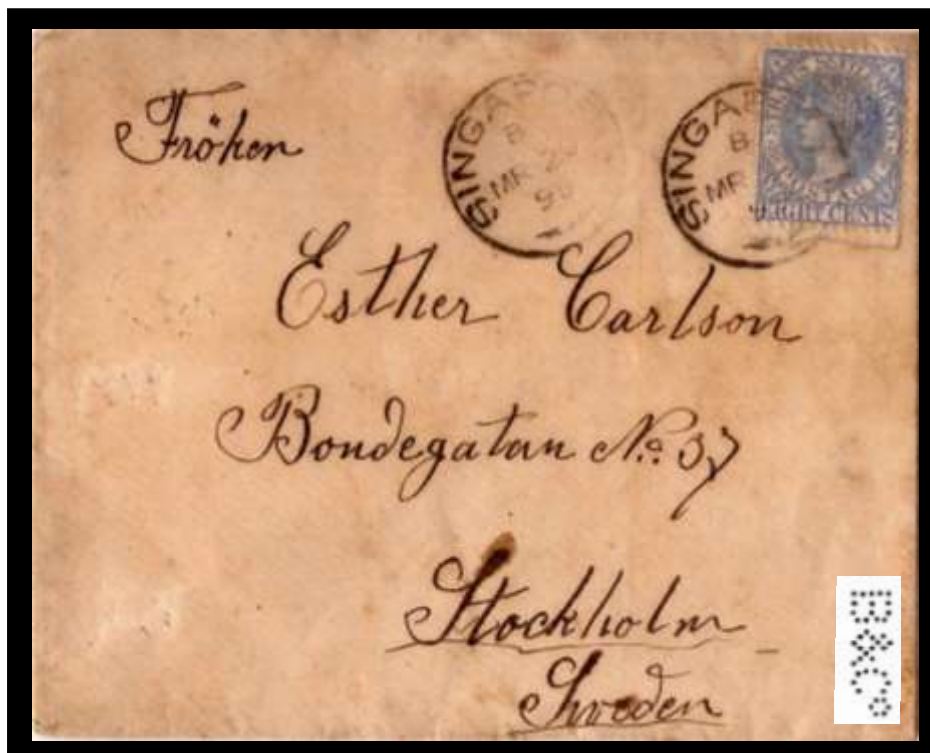 Fröken
SINGAPO
B
MR 2
9
SINGA
B
MR
POSTAGE
EIGHT CENTS
Esther Carlson
Bondegatan No. 37
Stockholm
Sweden
B&Co